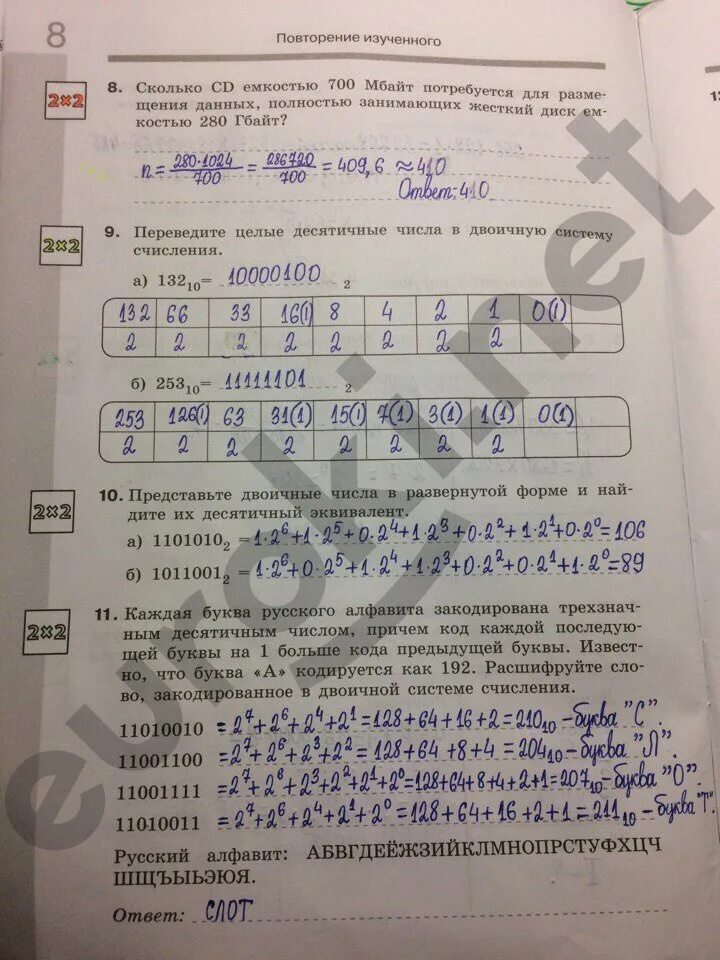 8
Повторение изученного
2×2
8. Сколько CD емкостью 700 Мбайт потребуется для разме-
щения данных, полностью занимающих жесткий диск ем-
костью 280 Гбайт?
n = 280·1024 / 700 = 286720 / 700 = 409,6 ≈ 410
Ответ: 410
2×2
9. Переведите целые десятичные числа в двоичную систему
счисления.
а) 132₁₀ = 10000100 ₂
132 66 33 16(1) 8 4 2 1 0(1)
2 2 2 2 2 2 2 2
б) 253₁₀ = 11111101 ₂
253 126(1) 63 31(1) 15(1) 7(1) 3(1) 1(1) 0(1)
2 2 2 2 2 2 2 2
2×2
10. Представьте двоичные числа в развернутой форме и най-
дите их десятичный эквивалент.
а) 1101010₂ = 1·2⁶+1·2⁵+0·2⁴+1·2³+0·2²+1·2¹+0·2⁰=106
б) 1011001₂ = 1·2⁶+0·2⁵+1·2⁴+1·2³+0·2²+0·2¹+1·2⁰=89
2×2
11. Каждая буква русского алфавита закодирована трехзнач-
ным десятичным числом, причем код каждой последую-
щей буквы на 1 больше кода предыдущей буквы. Извест-
но, что буква «А» кодируется как 192. Расшифруйте сло-
во, закодированное в двоичной системе счисления.
11010010 = 2⁷+2⁶+2⁴+2¹=128+64+16+2=210₁₀ – буква "С".
11001100 = 2⁷+2⁶+2³+2² = 128+64+8+4 = 204₁₀ – буква "Л".
11001111 = 2⁷+2⁶+2³+2²+2¹+2⁰=128+64+8+4+2+1=207₁₀ – буква "О".
11010011 = 2⁷+2⁶+2⁴+2¹+2⁰=128+64+16+2+1=211₁₀ – буква "Т".
Русский алфавит: АБВГДЕЁЖЗИЙКЛМНОПРСТУФХЦЧ
ШЩЪЫЬЭЮЯ.
Ответ: СЛОТ
euroki.net